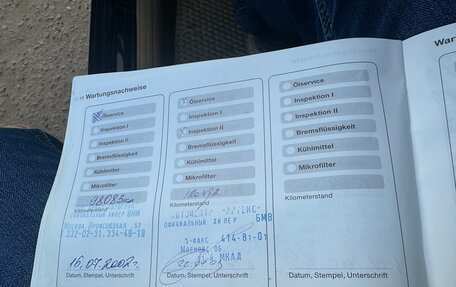 Wartungsnachweise
Ölservice
Inspektion I
Inspektion II
Bremsflüssigkeit
Kühlmittel
Mikrofilter
98083км
Kilometerstand
ОФИЦИАЛЬНЫЙ ДИЛЕР БМВ
МОСКВА. ПРОФСОЮЗНАЯ.
332-02-31.334-49-19
16.07.2002г.
Datum, Stempel, Unterschrift
Ölservice
Inspektion I
Inspektion II
Bremsflüssigkeit
Kühlmittel
Mikrofilter
Kilometerstand
ОФИЦИАЛЬНЫЙ ДИЛЕР БМВ
414-81-01
МКАД
Datum, Stempel, Unterschrift
Ölservice
Inspektion I
Inspektion II
Bremsflüssigkeit
Kühlmittel
Mikrofilter
Kilometerstand
Datum, Stempel, Unterschrift